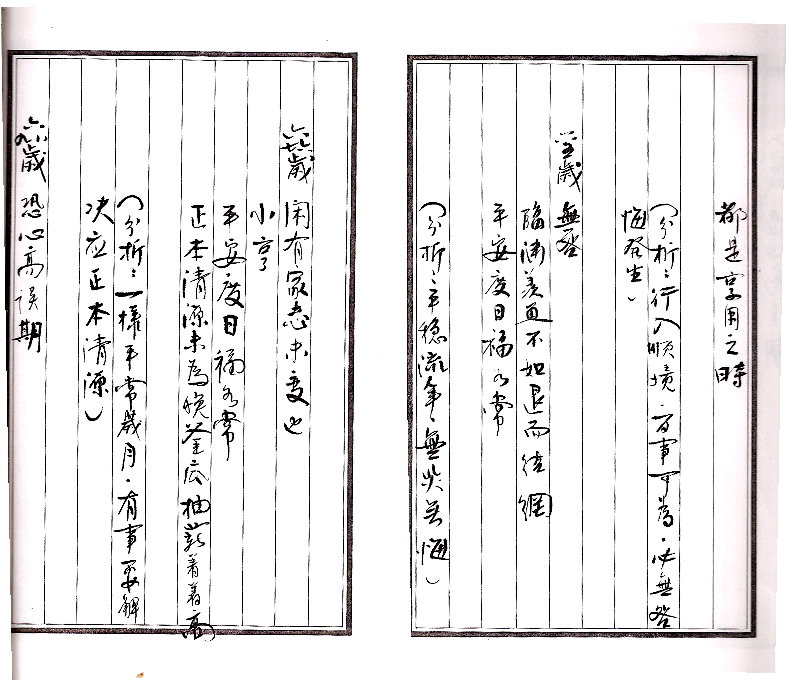 都是享用之時
(分析:行入順境,百事可為,必無咎
悔發生)
歲 無咎
臨淵羨魚不如退而結網
平安度日福亦常
(分析:平穩流年,無災無悔)
歲 閑有家志未變也
小亨
平安度日福亦常
正本清源未為晚 釜底抽薪着着高
(分析:一樣平常歲月,有事要解
决应正本清源)
歲 恐心高误期